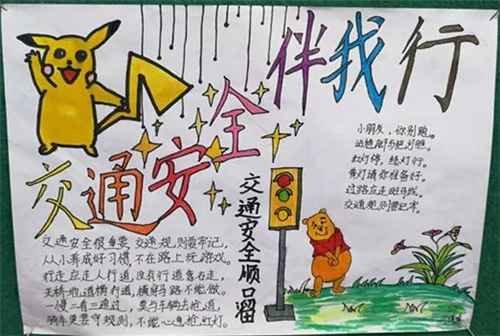 交通安全伴我行
小朋友，你别跑。
站稳脚步把灯瞧。
红灯停，绿灯行。
黄灯请你准备好。
过路应走斑马线。
交通规则要记牢。
交通安全顺口留
交通安全很重要，交通规则要牢记，
从小养成好习惯，不在路上玩游戏。
行走应走人行道，没有行道靠右走，
天桥地道横行道，横穿马路不能做。
一慢二看三通过，莫与车辆去抢道，
骑车更要守规则，不能心急抢红灯。